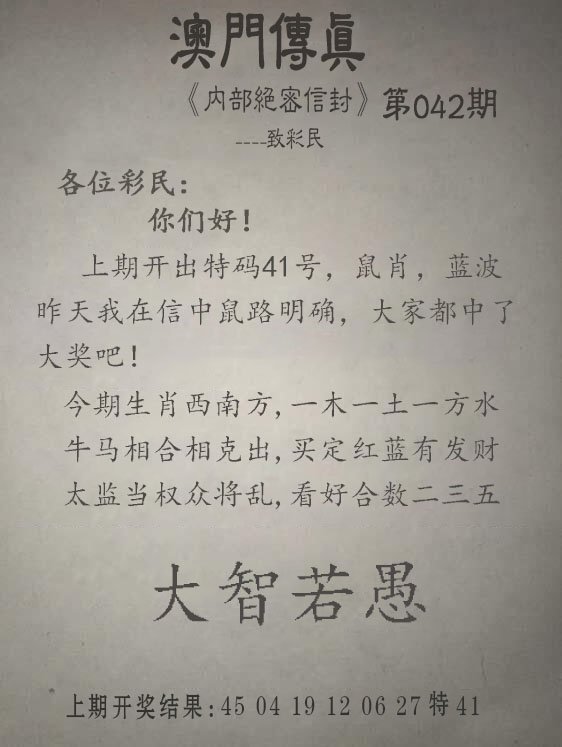 澳門傳真
《内部絕密信封》第042期
----致彩民
各位彩民：
你们好！
上期开出特码41号，鼠肖，蓝波
昨天我在信中鼠路明确，大家都中了
大奖吧！
今期生肖西南方,一木一土一方水
牛马相合相克出,买定红蓝有发财
太监当权众将乱,看好合数二三五
大智若愚
上期开奖结果:45 04 19 12 06 27特41